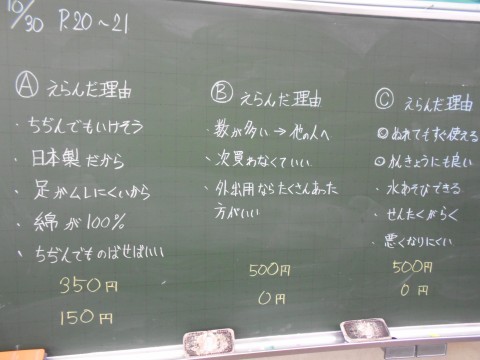 10/30 P.20～21
Ⓐ えらんだ理由
・ちぢんでもいけそう
・日本製だから
・足がムレにくいから
・綿が100%
・ちぢんでものばせばいい
350円
150円
Ⓑ えらんだ理由
・数が多い→他の人へ
・次買わなくていい
・外出用ならたくさんあった
方がいい
500円
0円
Ⓒ えらんだ理由
◎ぬれてもすぐ使える
◎かんきょうにも良い
・水あそびできる
・せんたくがらく
・悪くなりにくい
500円
0円